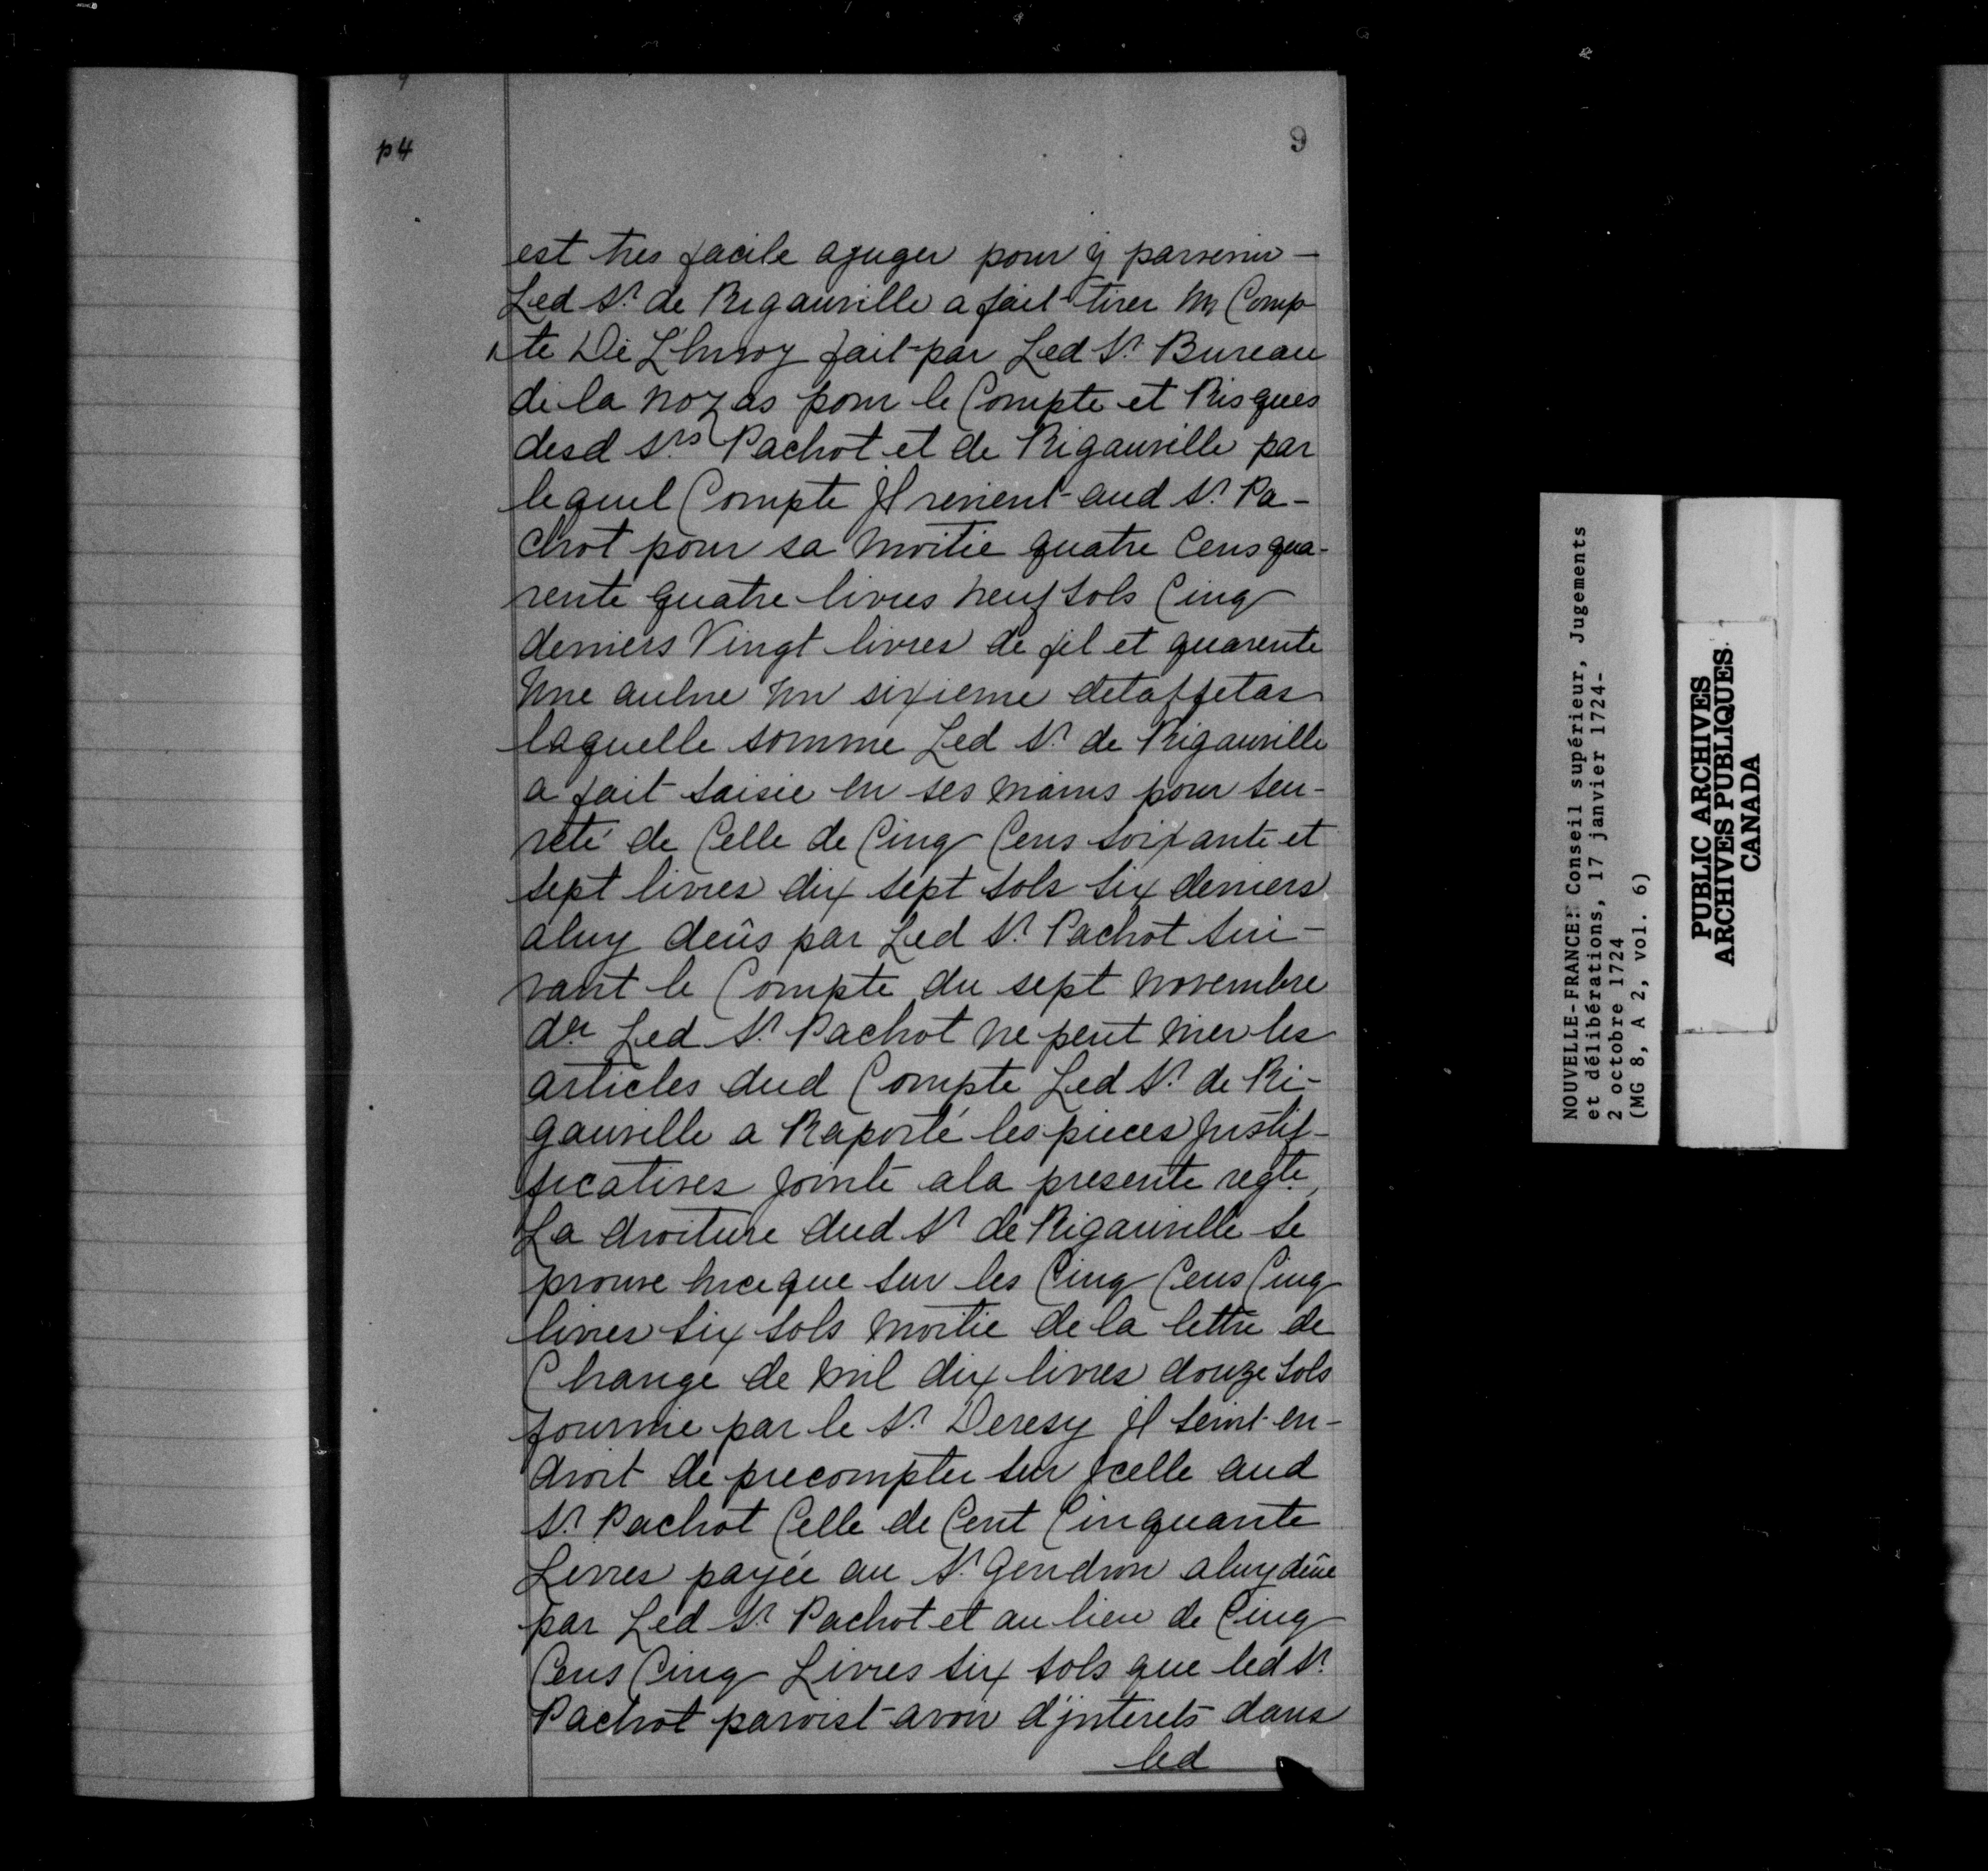 9
p4
9
est tres facile ajuger pour y parvenir -
Led Sr. de Rigauville a fait tirer Un Comp
te De L'Envoy fait par Led Sr. Bureau
de la nozas pour le Compte et Risques
desd Srs Pachot et de Rigauville par
lequel Compte Jl revient aud Sr. Pa-
chot pour sa moitie quatre Cens qua-
rente quatre livres neuf sols Cinq
deniers Vingt livres de fil et quarente
Une aulne Un sixieme detaffetas
laquelle somme Led Sr. de Rigauville
a fait saisie en ses mains pour seu-
reté de Celle de Cinq Cens soixante et
sept livres dix sept sols six deniers
aluy deûs par Led Sr. Pachot sui-
vant le Compte du sept novembre
der Led Sr. Pachot ne peut nier les
articles dud Compte Led Sr. de Ri-
gauville a Raporté les pieces justif-
ficatives jointe ala presente regte,
La droiture dud Sr de Rigauville se
prouve en ce que sur les Cinq Cens Cinq
livres six sols moitie de la lettre de
Change de mil dix livres douze sols
fournie par le Sr. Deresy Jl seroit en-
droit de precompter sur Jcelle aud
Sr. Pachot Celle de Cent Cinquante
Livres payée au Sr. Gendron aluy deüe
par Led Sr. Pachot et au lieu de Cinq
Cens Cinq Livres six sols que led Sr.
Pachot paroist avoir d'jnterets dans
led
NOUVELLE-FRANCE: Conseil supérieur, Jugements
et délibérations, 17 janvier 1724-
2 octobre 1724
(MG 8, A 2, vol. 6)
PUBLIC ARCHIVES
ARCHIVES PUBLIQUES
CANADA